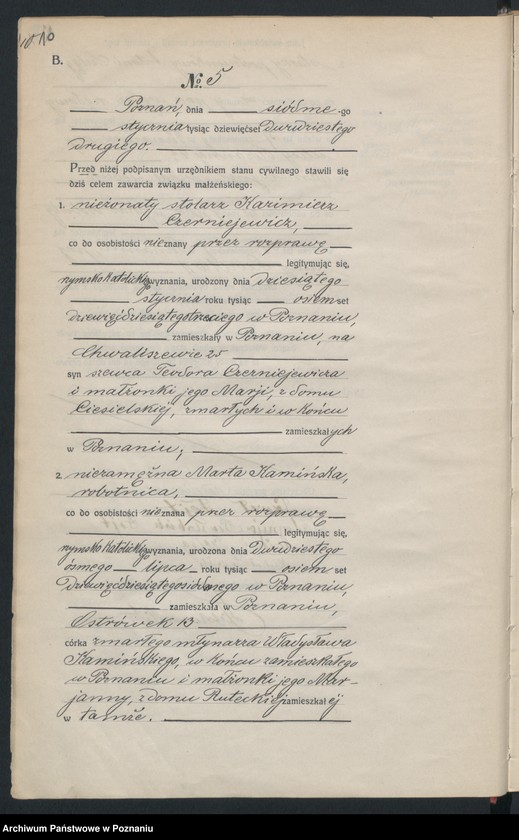 B.
№ 5
Poznań, dnia siódme-go
stycznia tysiąc dziewięćset dwudziestego
drugiego.
Przed niżej podpisanym urzędnikiem stanu cywilnego stawili się
dziś celem zawarcia związku małżeńskiego:
1. nieżonaty stolarz Kazimierz
Czerniejewicz,
co do osobistości nieznany przez rozprawę
legitymując się,
rzymsko katolickiego wyznania, urodzony dnia dziesiątego
stycznia roku tysiąc osiemset
dziewięćdziesiątego trzeciego w Poznaniu,
zamieszkały w Poznaniu, na
Chwaliszewie 25
syn szewca Teodora Czerniejewicza
i małżonki jego Marji, z domu
Ciesielskiej, zmarłych i w końcu
zamieszkałych
w Poznaniu;
2. niezamężna Marta Kamińska,
robotnica,
co do osobistości nieznana przez rozprawę
legitymując się,
rzymsko katolickiego wyznania, urodzona dnia dwudziestego
ósmego lipca roku tysiąc osiemset
dziewięćdziesiątego siódmego w Poznaniu,
zamieszkała w Poznaniu,
Ostrówek 13
córka zmarłego młynarza Władysława
Kamińskiego, w końcu zamieszkałego
w Poznaniu i małżonki jego Mar-
janny, z domu Ruteckiej zamieszkałej
w tamże.
Archiwum Państwowe w Poznaniu